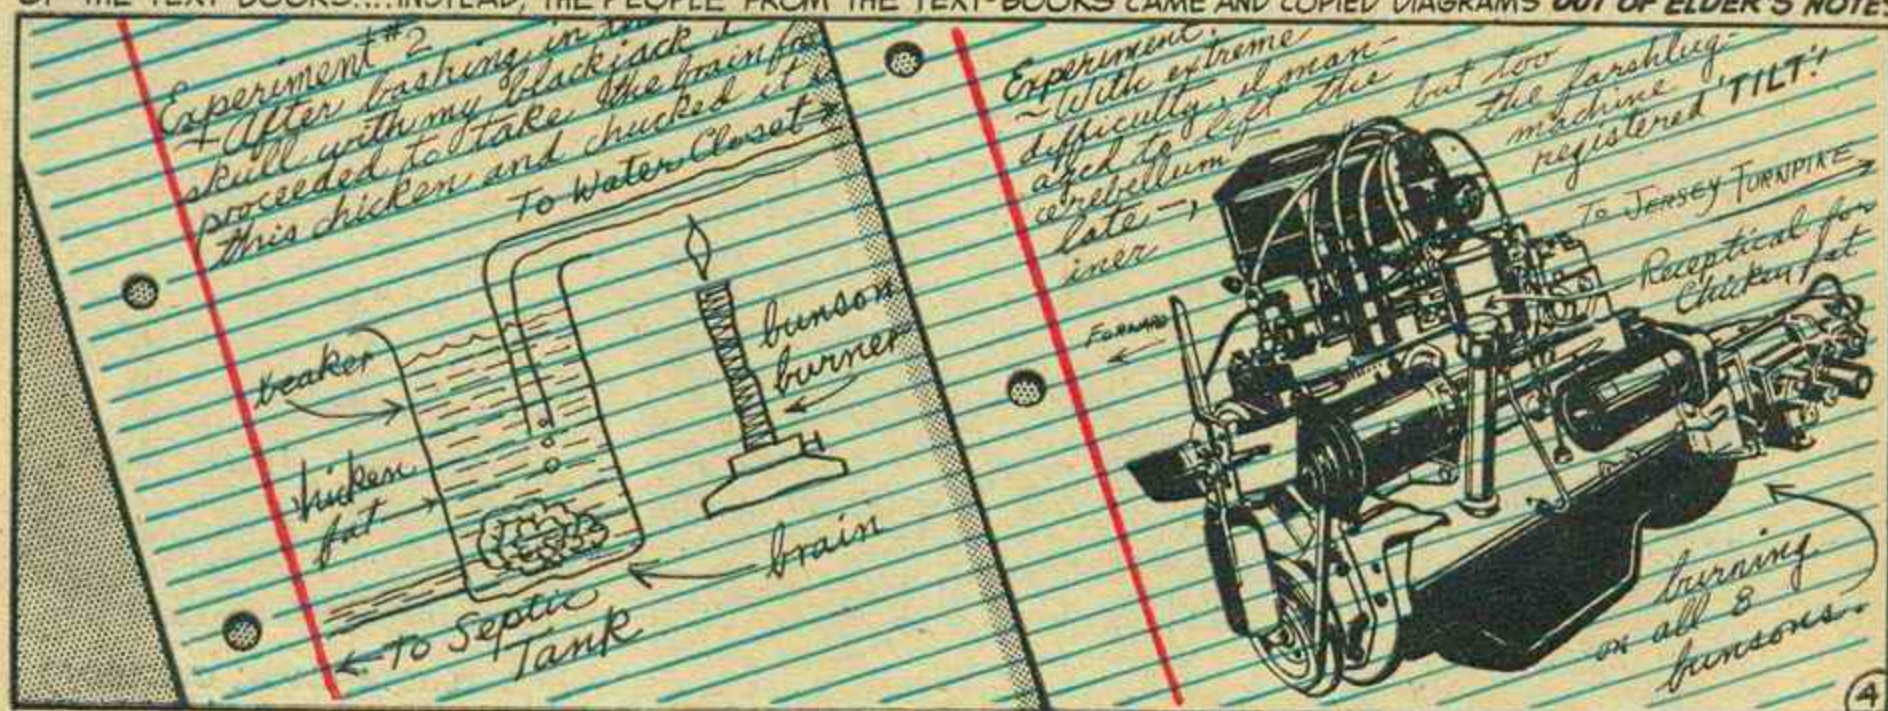 OF THE TEXT-BOOKS....INSTEAD, THE PEOPLE FROM THE TEXT-BOOKS CAME AND COPIED DIAGRAMS OUT OF ELDER'S NOTES
Experiment #2
- After bashing in the
skull with my blackjack I
proceeded to take the brain
this chicken and chucked it
To Water Closet
beaker
bunson
burner
chicken
fat
brain
To Septic
Tank
Experiment.
- With extreme
difficulty, I man-
aged to lift the
cerebellum but too
late -, the farshlug-
iner machine
registered 'TILT'!
To JERSEY TURNPIKE
Receptical for
Chicken fat
FORWARD
burning
on all 8
bunsons.
4